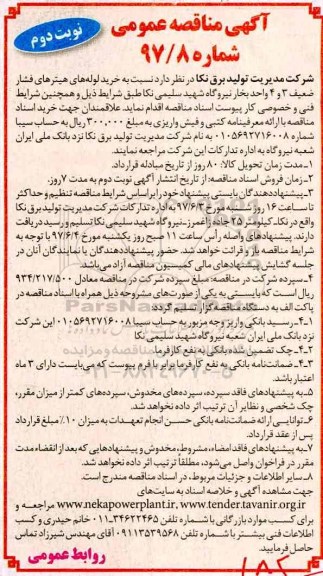 آگهی مناقصه عمومی
شماره ۹۷/۸
نوبت دوم
شرکت مدیریت تولید برق نکا در نظر دارد نسبت به خرید لوله‌های هیترهای فشار
ضعیف ۳ و ۴ واحد بخار نیروگاه شهید سلیمی نکا طبق شرایط ذیل و همچنین شرایط
فنی و خصوصی کار پیوست اسناد مناقصه اقدام نماید. علاقمندان جهت خرید اسناد
مناقصه با ارائه معرفینامه کتبی و فیش واریزی به مبلغ ۳۰۰,۰۰۰ ریال به حساب سیبا
شماره ۰۱۰۵۶۹۲۷۱۶۰۰۸ به نام شرکت مدیریت تولید برق نکا نزد بانک ملی ایران
شعبه نیروگاه به اداره تدارکات این شرکت مراجعه نمایند.
۱-مدت زمان تحویل کالا: ۸۰ روز از تاریخ مبادله قرارداد.
۲-زمان فروش اسناد مناقصه: از تاریخ انتشار آگهی نوبت دوم به مدت ۷ روز.
۳-پیشنهاددهندگان بایستی پیشنهاد خود را براساس شرایط مناقصه تنظیم و حداکثر
تا ساعت ۱۶ روز شنبه مورخ ۹۷/۶/۳ به اداره تدارکات شرکت مدیریت تولید برق نکا
واقع در نکا، کیلومتر ۲۵ جاده زاغمرز-نیروگاه شهید سلیمی نکا تسلیم و رسید دریافت
دارند. پیشنهادهای واصله رأس ساعت ۱۱ صبح روز یکشنبه مورخ ۹۷/۶/۴ با توجه به
شرایط مناقصه باز و قرائت خواهد شد. حضور پیشنهاددهندگان یا نمایندگان آنان در
جلسه گشایش پیشنهادهای مالی کمیسیون مناقصه آزاد می‌باشد.
۴-سپرده شرکت در مناقصه: مبلغ سپرده شرکت در مناقصه معادل ۹۳۴/۲۱۷/۵۰۰
ریال است که بایستی به یکی از صورت‌های مشروحه ذیل همراه با اسناد مناقصه در
پاکت الف به دستگاه مناقصه گزار تسلیم گردد:
۴-۱-رسید بانکی واریز وجه مزبور به حساب سیبا ۰۱۰۵۶۹۲۷۱۶۰۰۸ این شرکت
نزد بانک ملی ایران شعبه نیروگاه شهید سلیمی نکا
۴-۲-چک تضمین شده بانکی به نفع کارفرما.
۴-۳-ضمانت‌نامه بانکی به نفع کارفرما برابر با فرم پیوست که می‌بایست دارای ۳ ماه
اعتبار باشد.
۵-به پیشنهادهای فاقد سپرده، سپرده‌های مخدوش، سپرده‌های کمتر از میزان مقرر،
چک شخصی و نظایر آن ترتیب اثر داده نخواهد شد.
۶-توانایی ارائه ضمانت‌نامه بانکی حسن انجام تعهدات به میزان ۱۰٪ مبلغ قرارداد
پس از عقد قرارداد.
۷-به پیشنهادهای فاقد امضاء، مشروط، مخدوش و پیشنهادهایی که بعد از انقضاء مدت
مقرر در فراخوان واصل می‌شود، مطلقاً ترتیب اثر داده نخواهد شد.
۸-سایر اطلاعات و جزئیات مربوط، در اسناد مناقصه مندرج است.
جهت مشاهده آگهی و خلاصه اسناد به سایت‌های
www.nekapowerplant.ir, www.tender.tavanir.org.ir مراجعه و
برای کسب موارد بازرگانی با شماره تلفن ۳۴۶۲۲۴۶۵-۰۱۱ خانم حیدری و کسب
اطلاعات فنی بیشتر با شماره تلفن ۰۹۱۱۳۵۳۹۵۶۸ آقای مهندس شیرزاد تماس
حاصل فرمایید.
روابط عمومی